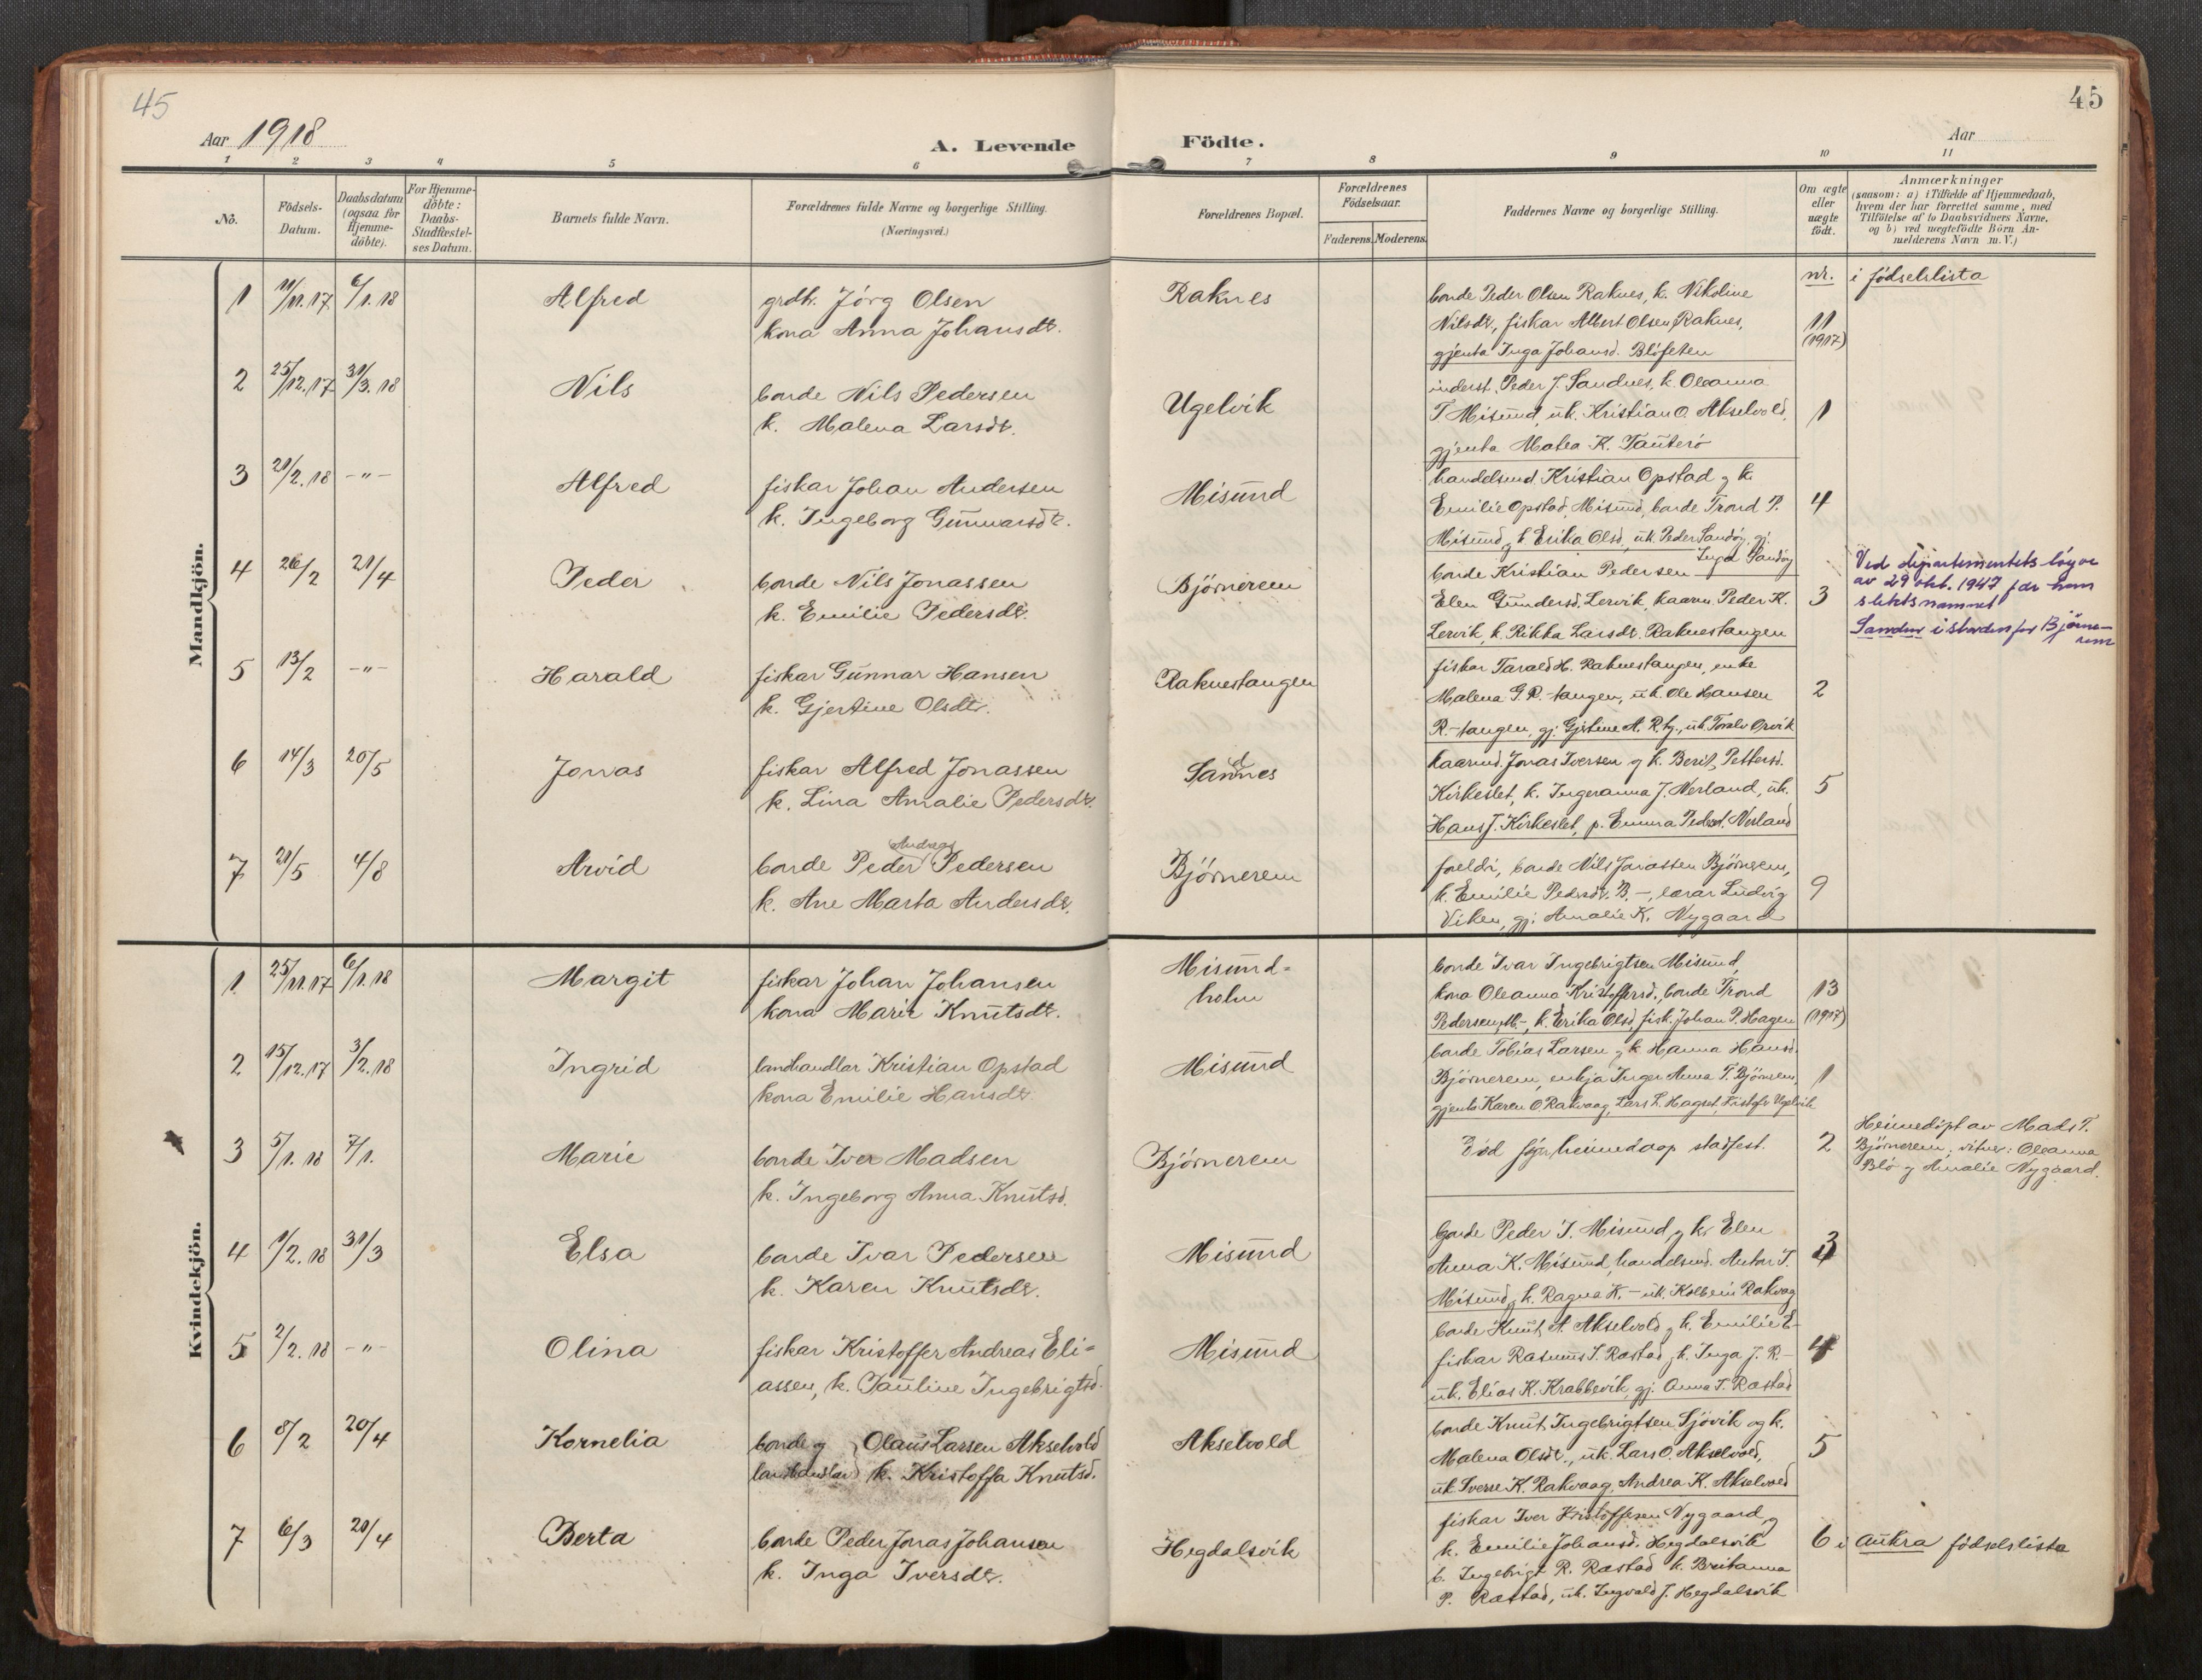 45
45
Aar 1918
A. Levende
Födte.
Aar
1 2 3 4 5 6 7 8 9 10 11
No.
Födsels-Datum.
Daabsdatum (ogsaa for Hjemmedöbte).
For Hjemmedöbte: Daabs-Stadfæstelses Datum.
Barnets fulde Navn.
Forældrenes fulde Navne og borgerlige Stilling.
(Næringsvei.)
Forældrenes Bopæl.
Forældrenes Födselsaar.
Faderens. Moderens.
Faddernes Navne og borgerlige Stilling.
Om ægte eller uægte födt.
Anmærkninger
(saasom: a) i Tilfælde af Hjemmedaab,
hvem der har forrettet samme, med
Tilföielse af to Daabsvidners Navne,
og b) ved uægtefödte Börn An-
melderens Navn m. V.)
nr. i födselslista
Mandkjön.
1 11/11.17 6/1.18 Alfred
grdb. Jörg Olsen
kona Anna Johansdt.
Raknes
bonde Peder Olsen Raknes, k. Nikoline
Nilsdt., fiskar Albert Olsen Raknes,
gjenta Inga Johansd. Blöfeten
11 (1917)
2 25/12.17 31/3.18 Nils
bonde Nils Pedersen
k. Malena Larsdt.
Ugelvik
inderst. Peder J. Sandnes, k. Oleanna
T. Misund, uk. Kristian O. Akselvold,
gjenta Matea K. Tauterö
1
3 21/2.18 -"- Alfred
fiskar Johan Andersen
k. Ingeborg Gunnarsdt.
Misund
handelsmd. Kristian Opstad g k.
Emilie Opstad, Misund, bonde Trond P.
Misund g k Erika Olsd., uk. Peder Sandöy, gj.
Inga Sandöy
4
4 26/2 21/4 Peder
bonde Nils Jonassen
k. Emilie Pedersdt.
Björnerem
bonde Kristian Pedersen
Elen Gundersd. Lervik, kaarm. Peder K.
Lervik, k. Rikka Larsdt. Raknestangen
3
Ved departementets löyve
av 29 okt. 1947 får han
slektsnamnet
Sandnes i staden for Björne-
rem
5 13/2 -"- Harald
fiskar Gunnar Hansen
k. Gjertine Olsdtr.
Raknestangen
fiskar Tarald H. Raknestangen, enke
Malena G. R.-tangen, uk. Ole Hansen
R.-tangen, gj. Gjertine A. R.tg., uk. Toralv Orvik
2
6 14/3 20/5 Jonas
fiskar Alfred Jonassen
k. Lina Amalie Pedersdt.
Sandnes
kaarmd. Jonas Iversen g k. Berit Pettersd.
Kirkeslet, k. Ingeranna J. Nerland, uk.
Hans J. Kirkeslet, p. Emma Pedersd. Nerland
5
7 21/5 4/8 Arvid
Andreas
bonde Peder Pedersen
k. Ane Marta Andersdt.
Björnerem
foreldri, bonde Nils Jonassen Björnerem,
k. Emilie Pedersdt. B.-, lærar Ludvig
Viken, gj. Amalie K. Nygaard
9
Kvindekjön.
1. 25/11.17 6/1.18 Margit
fiskar Johan Johansen
kona Marie Knutsdt.
Misund-
holm
bonde Ivar Ingebrigtsen Misund,
kona Oleanna Kristoffersd., bonde Trond
Pedersen, M.-, k. Erika Olsd, fisk. Johan P. Hagen
13 (1917)
2 15/12.17 3/2.18 Ingrid
landhandlar Kristian Opstad
kona Emilie Hansdt.
Misund
bonde Tobias Larsen g k Hanna Hansd.
Björnerem, enkja Inger Anna T. Björnerem,
gjenta Karen O. Rakvaag, Lars L. Hagset, Kristofr Ugelvik
1
3 5/1.18 7/1. Marie
bonde Iver Madsen
k. Ingeborg Anna Knutsd.
Björnerem
Död fyr heimedaap stadfest.
2
Heimedöpt av Mads T.
Björnerem, vitner: Oleanna
Blö g Amalie Nygaard.
4 9/2.18 31/3 Elsa
bonde Ivar Pedersen
k. Karen Knutsdt.
Misund
bonde Peder I. Misund g k. Elen
Anna K. Misund, handelsmd. Anton T.
Misund g k. Ragna K. - uk. Kolbein Rakvag
3
5 2/2.18 -"- Olina
fiskar Kristoffer Andreas Eli-
assen, k. Pauline Ingebrigtsd.
Misund
bonde Knut A. Akselvold g k. Emilie E-
fiskar Rasmus I. Rastad g k. Inga J. R.-
uk. Elias K. Krabbevik, gj. Anna T. Rastad
4
6 8/2 20/4 Kornelia
bonde g Olaus Larsen Akselvold
landhandlar k. Kristoffa Knutsd.
Akselvold
bonde Knut Ingebrigtsen Sjövik og k.
Malena Olsdt., uk. Lars O. Akselvold,
uk. Sverre K. Rakvaag, Andrea K. Akselvold
5
7 6/3 21/4 Berta
bonde Peder Jonas Johansen
k. Inga Iversdt.
Hegdalsvik
fiskar Iver Kristoffersen Nygaard g
k. Emilie Johansd. Hegdalsvik
b. Ingebrigt R. Rastad k. Britanna
P. Rastad, uk. Ingvald J. Hegdalsvik
6 i Aukra födselslista